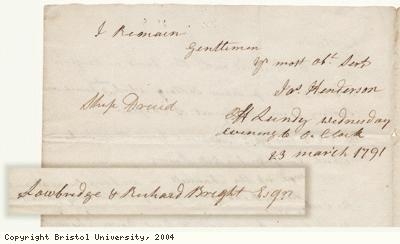 I Remain
Gentlemen
Yr most Obt Sert
Jas Henderson
Ship Druid
Off Lundy wednesday
evening 6 O Clock
23 march 1791
Lowbridge & Richard Bright Esqr
Copyright Bristol University, 2004